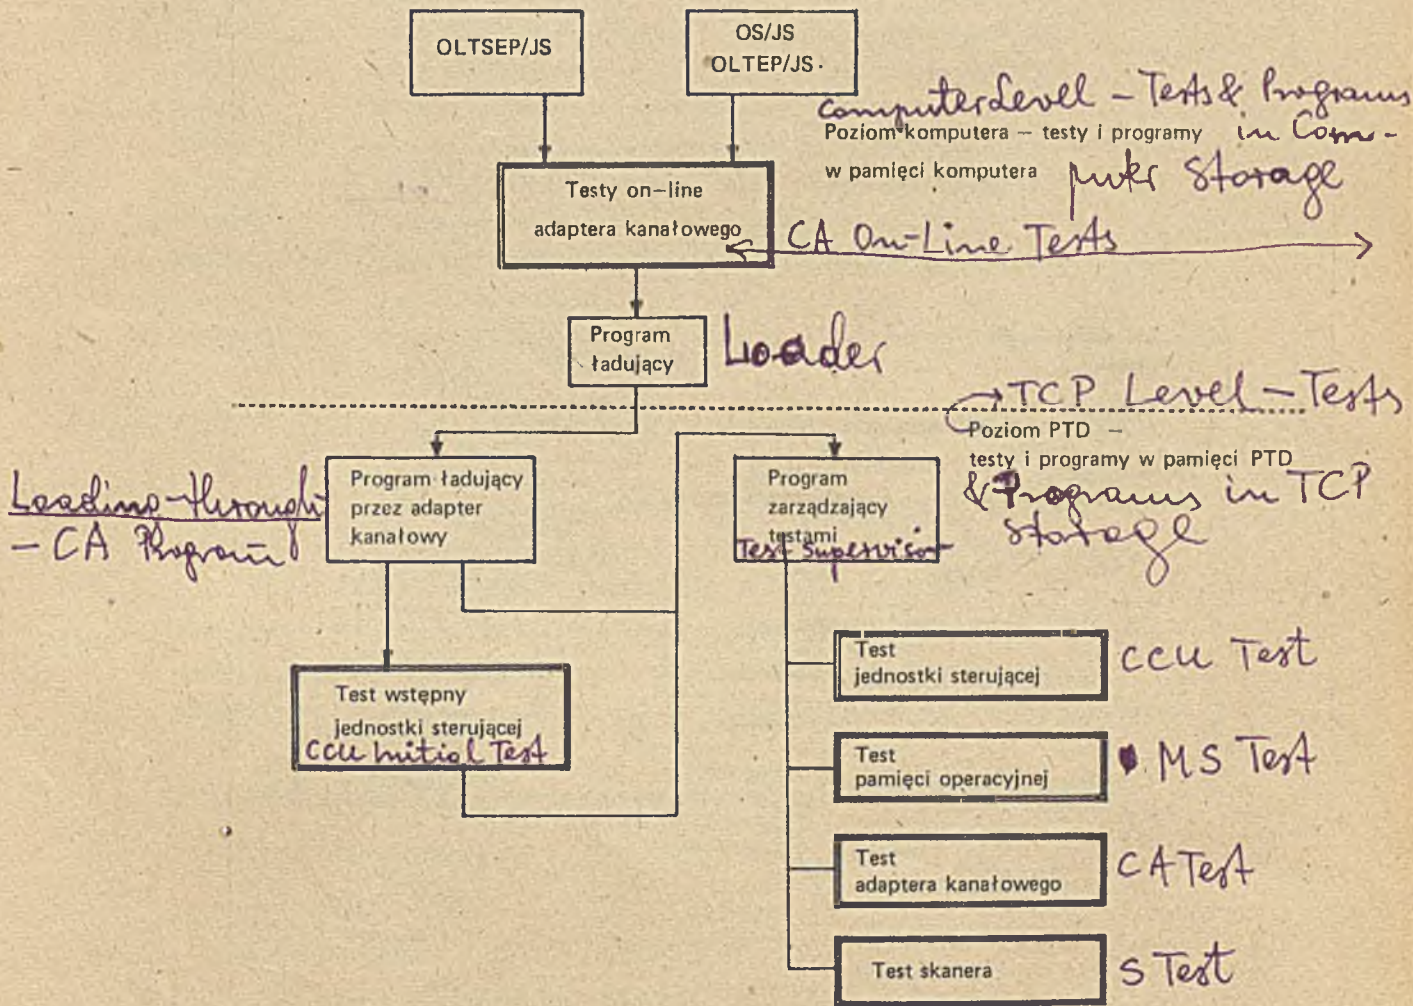 OLTSEP/JS
OS/JS
OLTEP/JS
Computer Level – Tests & Programs
Poziom komputera – testy i programy
in Com-
w pamięci komputera
puter Storage
Testy on–line
adaptera kanałowego
CA On-Line Tests
Program
ładujący
Loader
TCP Level – Tests
Poziom PTD –
testy i programy w pamięci PTD
& Programs in TCP
storage
Loading-through-
- CA Program
Program ładujący
przez adapter
kanałowy
Program
zarządzający
testami
Test Supervisor
Test wstępny
jednostki sterującej
CCU Initial Test
Test
jednostki sterującej
CCU Test
Test
pamięci operacyjnej
MS Test
Test
adaptera kanałowego
CA Test
Test skanera
S Test